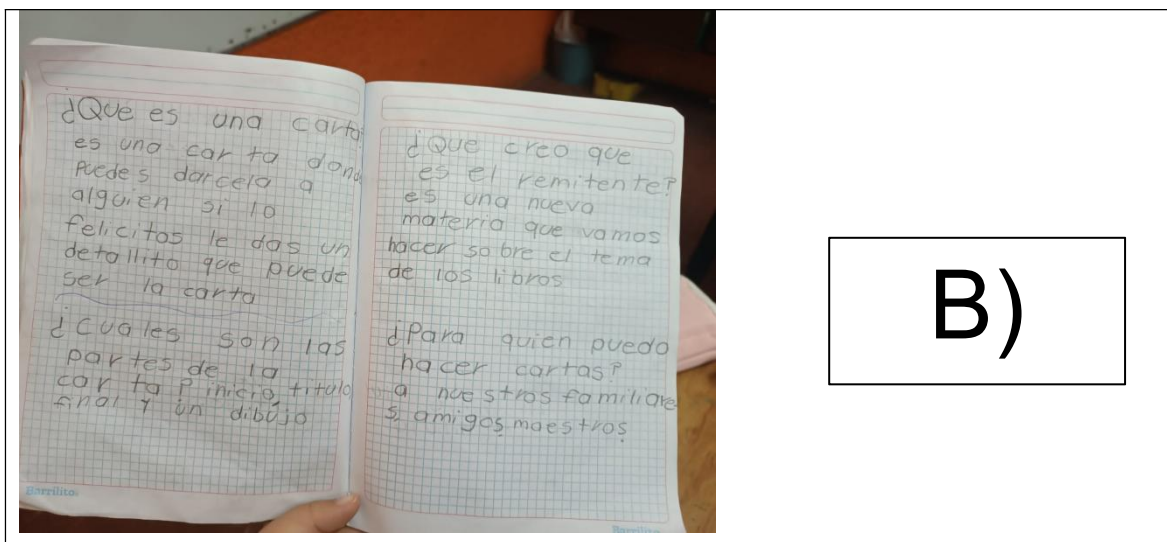 ¿Que es una carta
es una carta dond
puedes darcela a
alguien si lo
felicitos le das un
detallito que puede
ser la carta
¿cuales son las
partes de la
carta? inicio, titulo
final y un dibujo
Barrilito
¿Que creo que
es el remitente?
es una nueva
materia que vamos
hacer sobre el tema
de los libros
¿Para quien puedo
hacer cartas?
a nuestros familiare
s, amigos, maestros.
Barrilito
B)